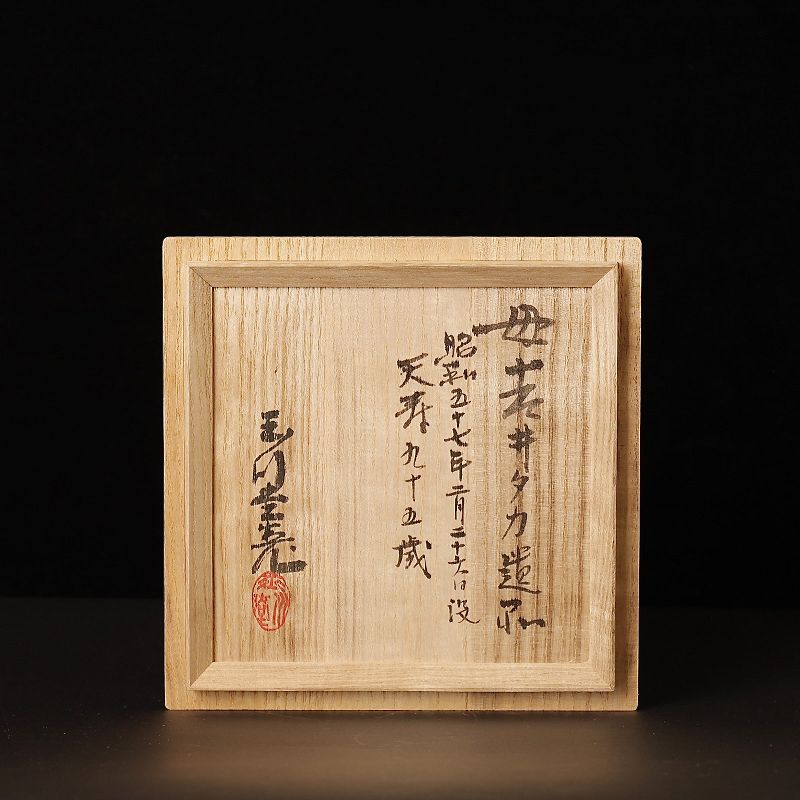 母吉井タカ遺品
昭和五十七年二月二十六日没
天寿九十五歳
玉川堂